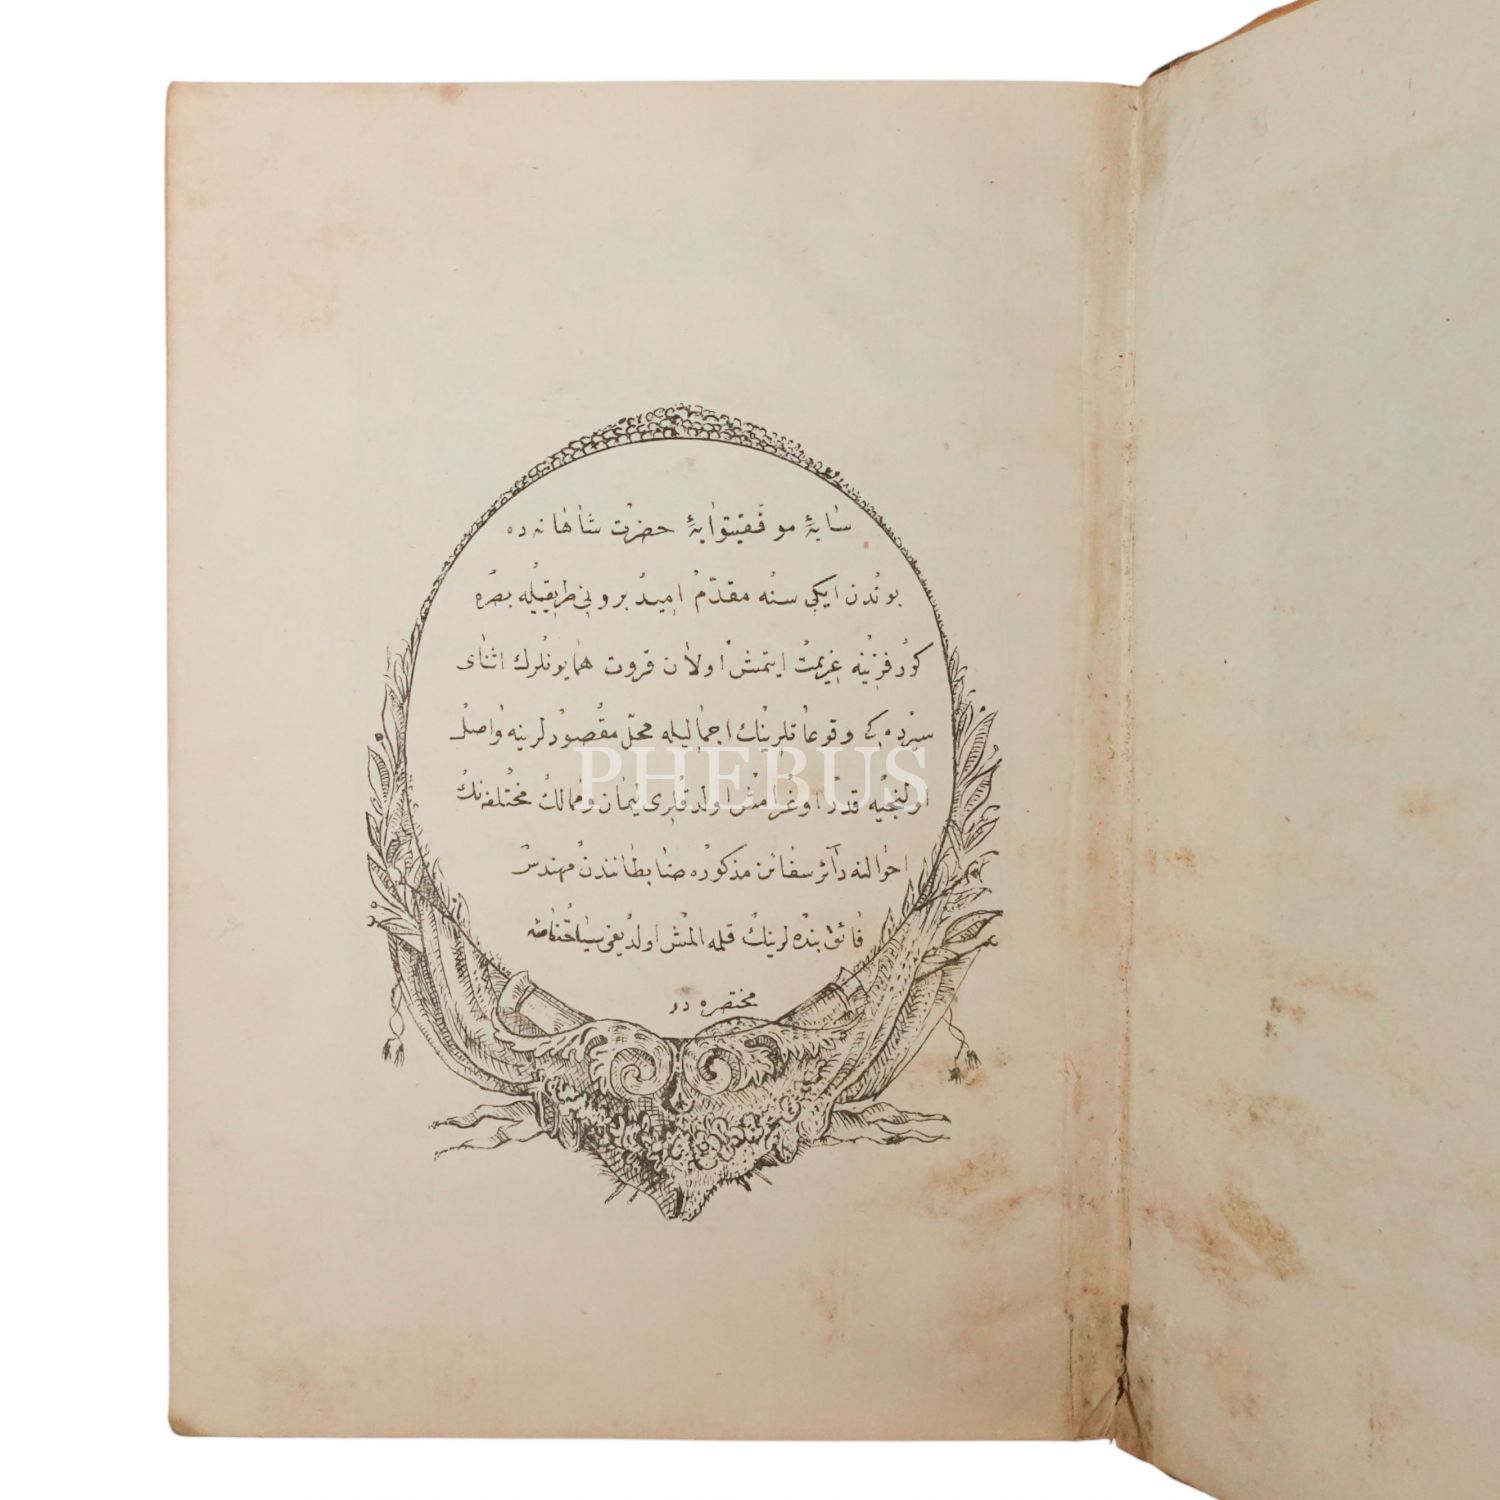 سایۀ موفقیتوایۀ حضرت شاهانه ده
بوندن ایکی سنه مقدم امید برونی طریقیله بصره
کورفزینه عزیمت ایتمش اولان قروت همایونلرك اثنای
سیرده کی وقوعاتلرینك اجمالیله محل مقصودلرینه واصل
اولنجیه قدر اوغرامش اولدقلری لیمان وممالك مختلفه نك
احوالنه دائر سفائن مذکوره ضابطانندن مهندس
فائق بنده لرینك قلمه المش اولدیغی سیاحتنامۀ
مختصره در
PHEBUS